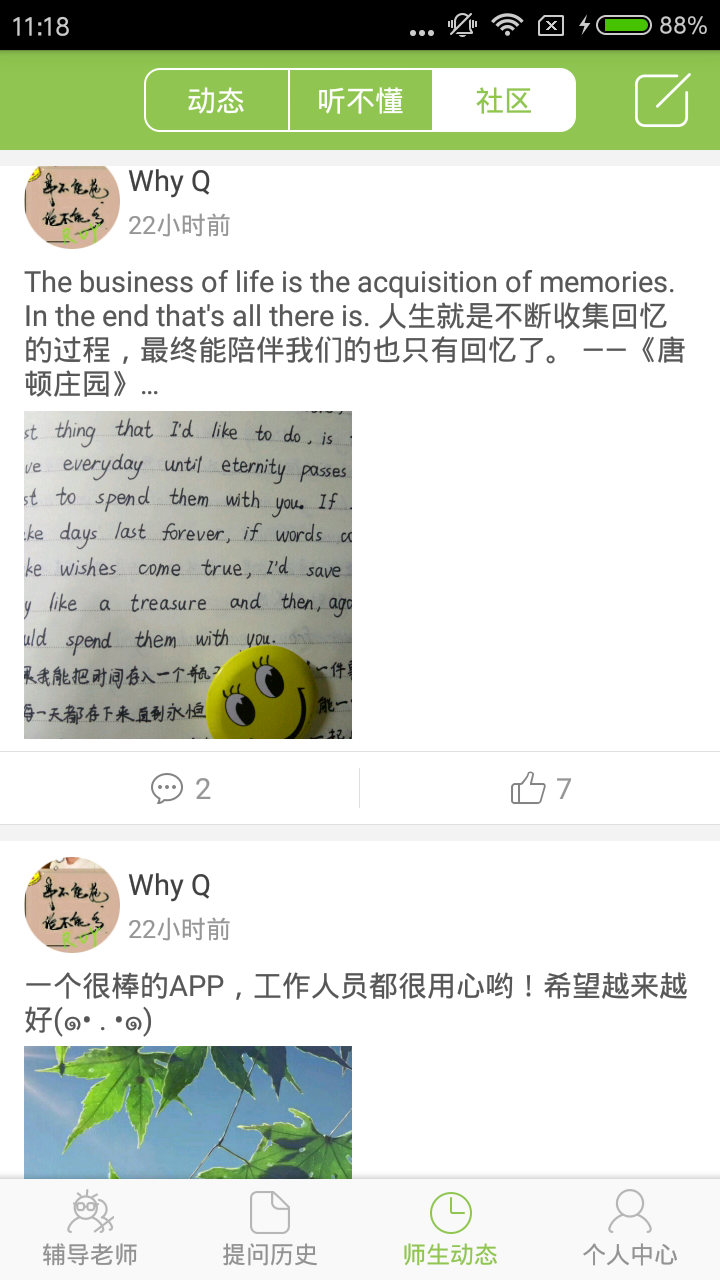 11:18
88%
动态
听不懂
社区
Why Q
22小时前
The business of life is the acquisition of memories.
In the end that's all there is. 人生就是不断收集回忆
的过程，最终能陪伴我们的也只有回忆了。 ——《唐
顿庄园》...
st thing that I'd like to do, is
ve everyday until eternity passes
st to spend them with you. If
ke days last forever, if words
ke wishes come true, I'd save
y like a treasure and then,
uld spend them with you.
果我能把时间存入一个瓶 一件
每一天都存下来直到永恒 能一
2
7
Why Q
22小时前
一个很棒的APP，工作人员都很用心哟！希望越来越
好(๑• . •๑)
辅导老师
提问历史
师生动态
个人中心